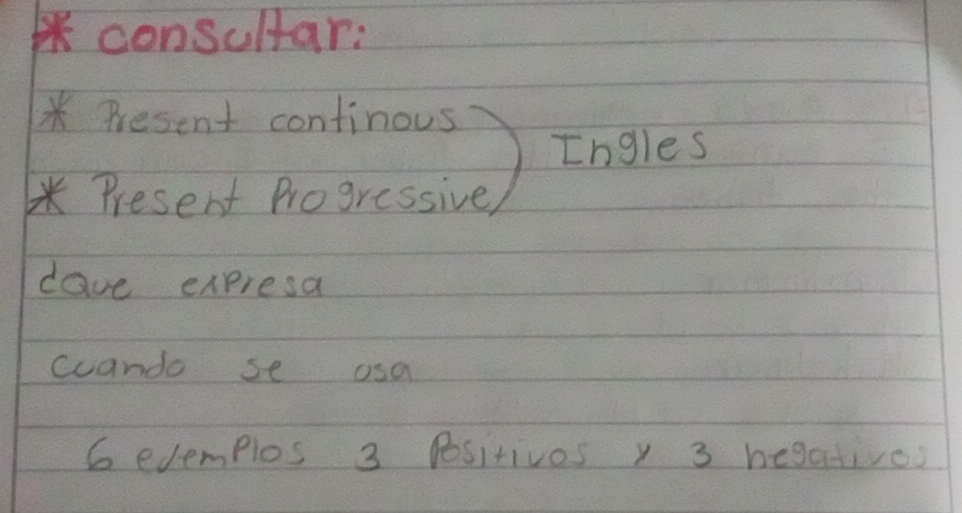 * consultar:
* Present continous
Ingles
* Present Progressive
dQue expresa
cuando se usa
6 eJemplos 3 Positivos y 3 negativos